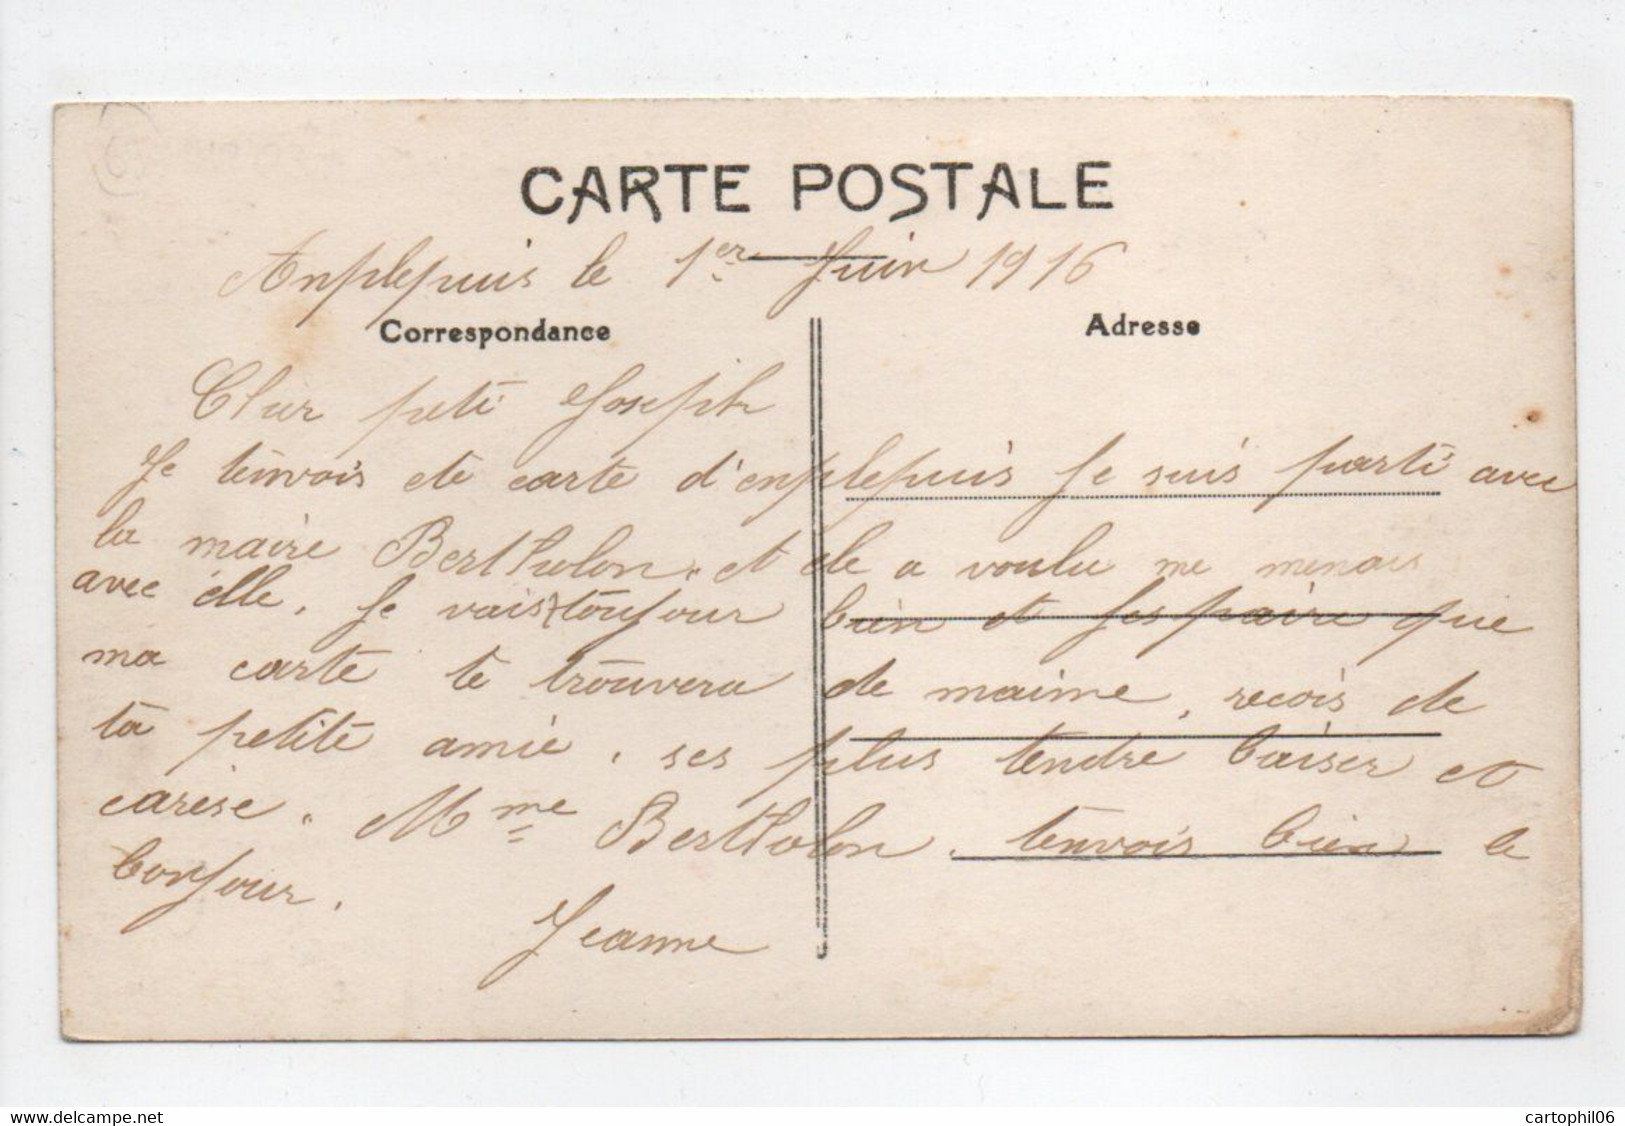 CARTE POSTALE
Anplepuis le 1er Juin 1916
Correspondance
Adresse
Cher peti Joseph
Je tenvois cte carte d'enplepuis Je suis parti avec
la maire Bertholon. et ele a voulu me menais
avec elle. Je vais toujour bien et Jespaire que
ma carte te trouvera de maime, recois de
ta petite amie, ses plus tendre baiser et
carese. Mme Bertholon. tenvois bien le
bonjour.
Jeanne
www.delcampe.net
cartophil06